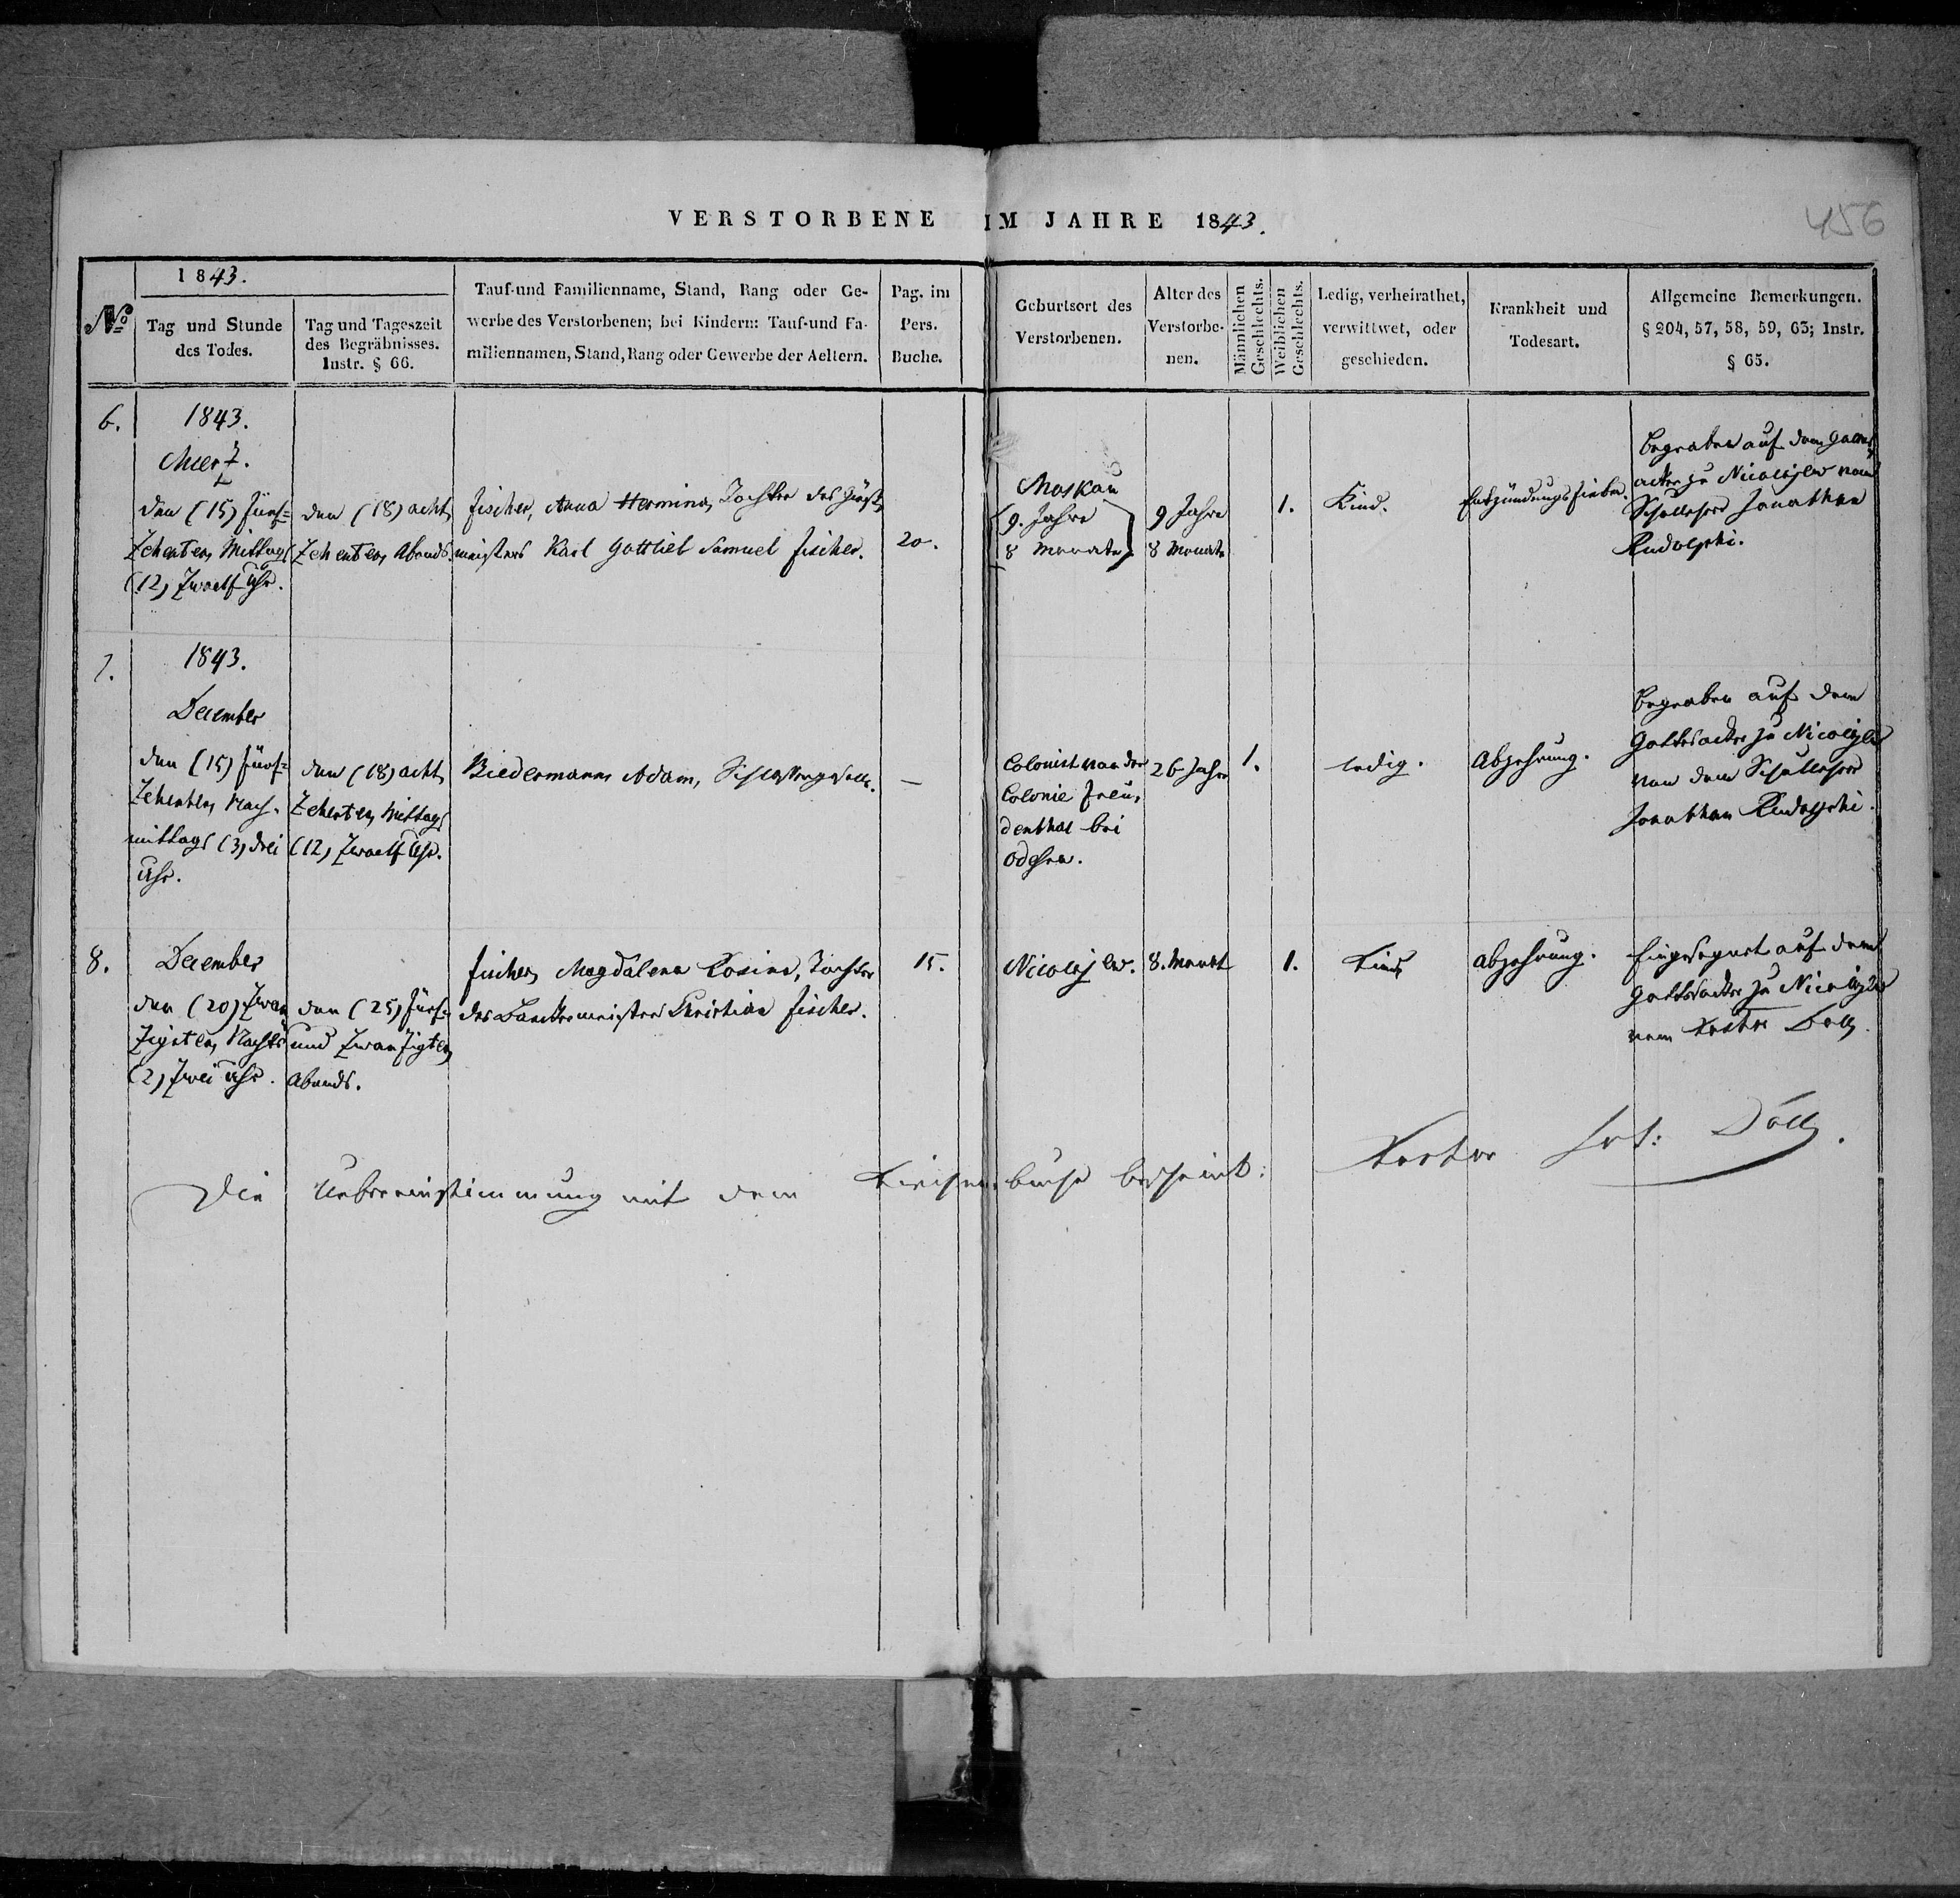 VERSTORBENE IM JAHRE 1843.
456
№
1843.
Tag und Stunde
des Todes.
Tag und Tageszeit
des Begräbnisses.
Instr. § 66.
Tauf-und Familienname, Stand, Rang oder Ge-
werbe des Verstorbenen; bei Kindern: Tauf-und Fa-
miliennamen, Stand, Rang oder Gewerbe der Aeltern.
Pag. im
Pers.
Buche.
Geburtsort des
Verstorbenen.
Alter des
Verstorbe-
nen.
Männlichen
Geschlechts.
Weiblichen
Geschlechts.
Ledig, verheirathet,
verwittwet, oder
geschieden.
Krankheit und
Todesart.
Allgemeine Bemerkungen.
§ 204, 57, 58, 59, 63; Instr.
§ 65.
6.
1843.
Merz.
den (15) fünf=
zehenten, Mittags
(12) zwoelf Uhr.
den (18) acht
zehenten, Abends.
Fischer, Anna Hermina, Tochter des
meisters Karl Gottlieb Samuel Fischer.
20.
Moskau
9. Jahre
8 Monate
9 Jahre
8 Monate
1.
Kind.
Entzündungsfieber.
Begraben auf dem Gottes
acker zu Nicolajew vom
Schullehrer Jonathan
Rudolphi.
7.
1843.
December
den (15) fünf=
zehenten, Nach-
mittags (3) drei
Uhr.
den (18) acht
zehenten, Mittags
(12) zwoelf Uhr.
Biedermann Adam,
—
Colonist von der
Colonie Freu,
denthal bei
Odessa.
26 Jahre
1.
ledig.
Abzehrung.
Begraben auf dem
Gottesacker zu Nicolajew
von dem Schullehrer
Jonathan Rudolphi.
8.
December
den (20) zwan
zigsten, Nachts
(2) zwei Uhr.
den (25) fünf=
und zwanzigten
Abends.
Fischer, Magdalena Rosina, Tochter
des Christian Fischer.
15.
Nicolajew.
8. Monat
1.
Kind
Abzehrung.
Eingesegnet auf dem
Gottesacker zu Nicolajew
vom Pastor Döll.
Die Uebereinstimmung mit dem Kirchenbuche bescheint:
Pastor Döll.